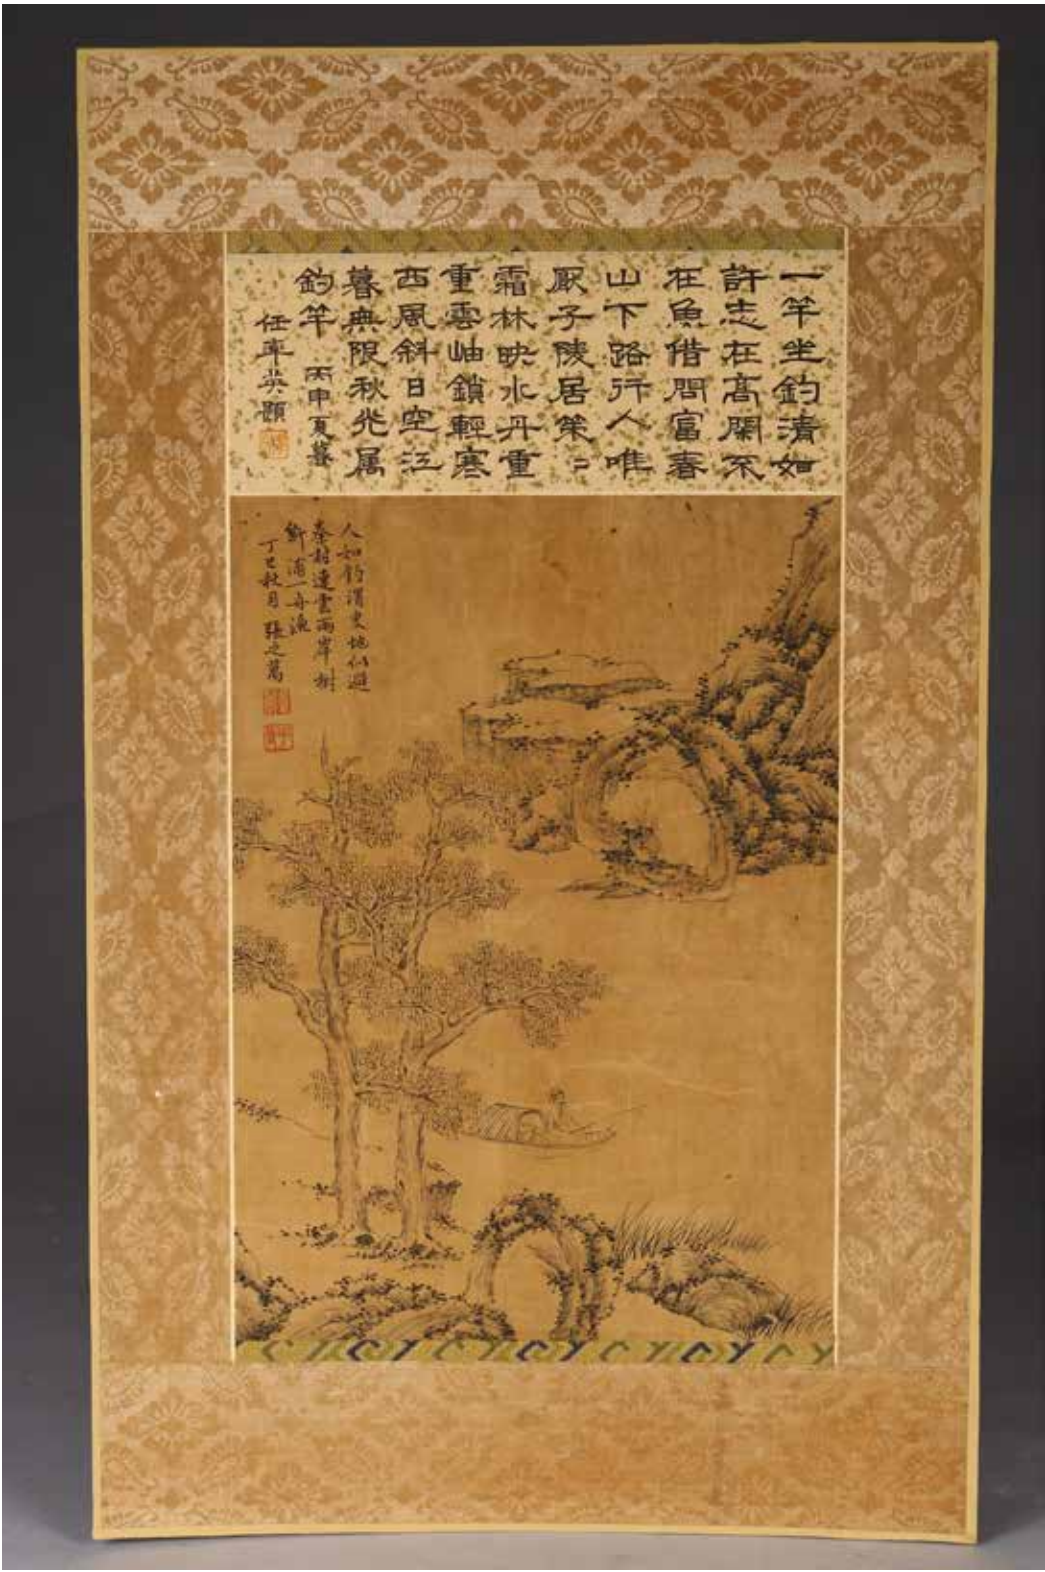 一竿坐釣清如
許志在高閑不
在魚借問富春
山下路行人唯
厭子陵居策〻
霜林映水丹重
重雲岫鎖輕寒
西風斜日空江
暮無限秋光屬
釣竿 丙申夏暮
任率英題
人如釣渭叟地似避
秦村連雲兩岸樹
斷浦一舟漁
丁巳秋月 張之萬